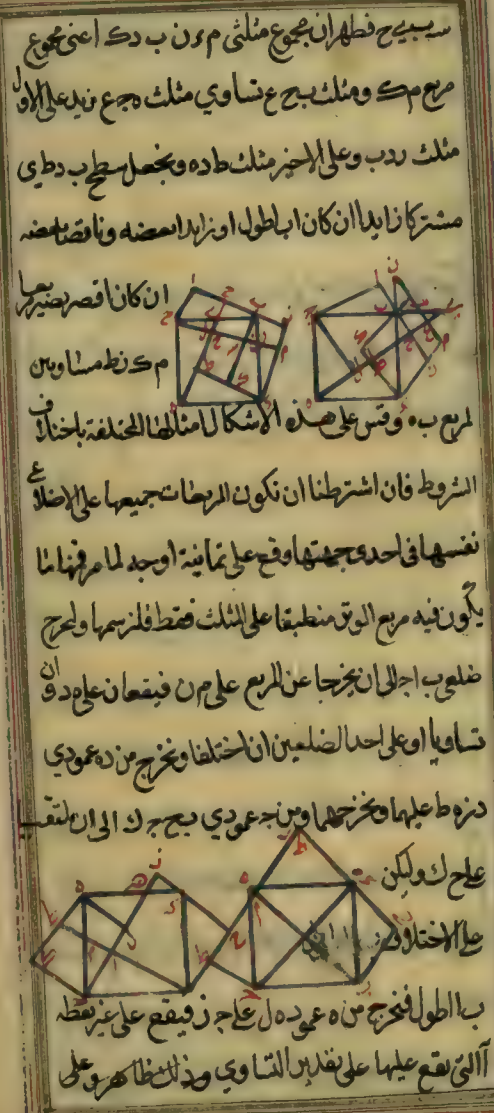 فظهر ان مجموع مثلثى م ء ن ب د ك اعنى مجموع
مربع م ك ومثلث ب ح ع تساوي مثلث ه ج ع نزيد على الاول
مثلث ر د ب وعلى الاخير مثلث ط ا د ه ونجعل سطح ب د ط ي
مشتركا زايدا ان كان ا ب اطول او زايدا بعضه وناقصا بعضه
ان كان اقصر يصير مربعا
م ك ن ط مساويين
لمربع ب ه وقس على هذه الاشكال امثالها المختلفة باختلاف
الشروط فان اشترطنا ان تكون المربعات جميعها على الاضلاع
نفسها فى احدى جهتيها وقع على ثمانية اوجه لما مر فمنها ما
يكون فيه مربع الوتر منطبقا على المثلث فقط فلنرسمها ولنخرج
ضلعى ب ا ج ا الى ان يخرجا عن المربع على م ن فيقعان على د ه ان
تساويا او على احد الضلعين ان اختلفا ونخرج من د ه عمودي
د ز ه ط عليهما ونخرجهما ومن ج عمودي ب ح ج ك الى ان نلتقى
على ح ك وليكن
على الاختلاف
ب ا اطول فنخرج من ه عمود ه ل على ج ز فيقع على غير نقطة
آ التى يقع عليها على تقدير التساوي وذلك ظاهر وعلى